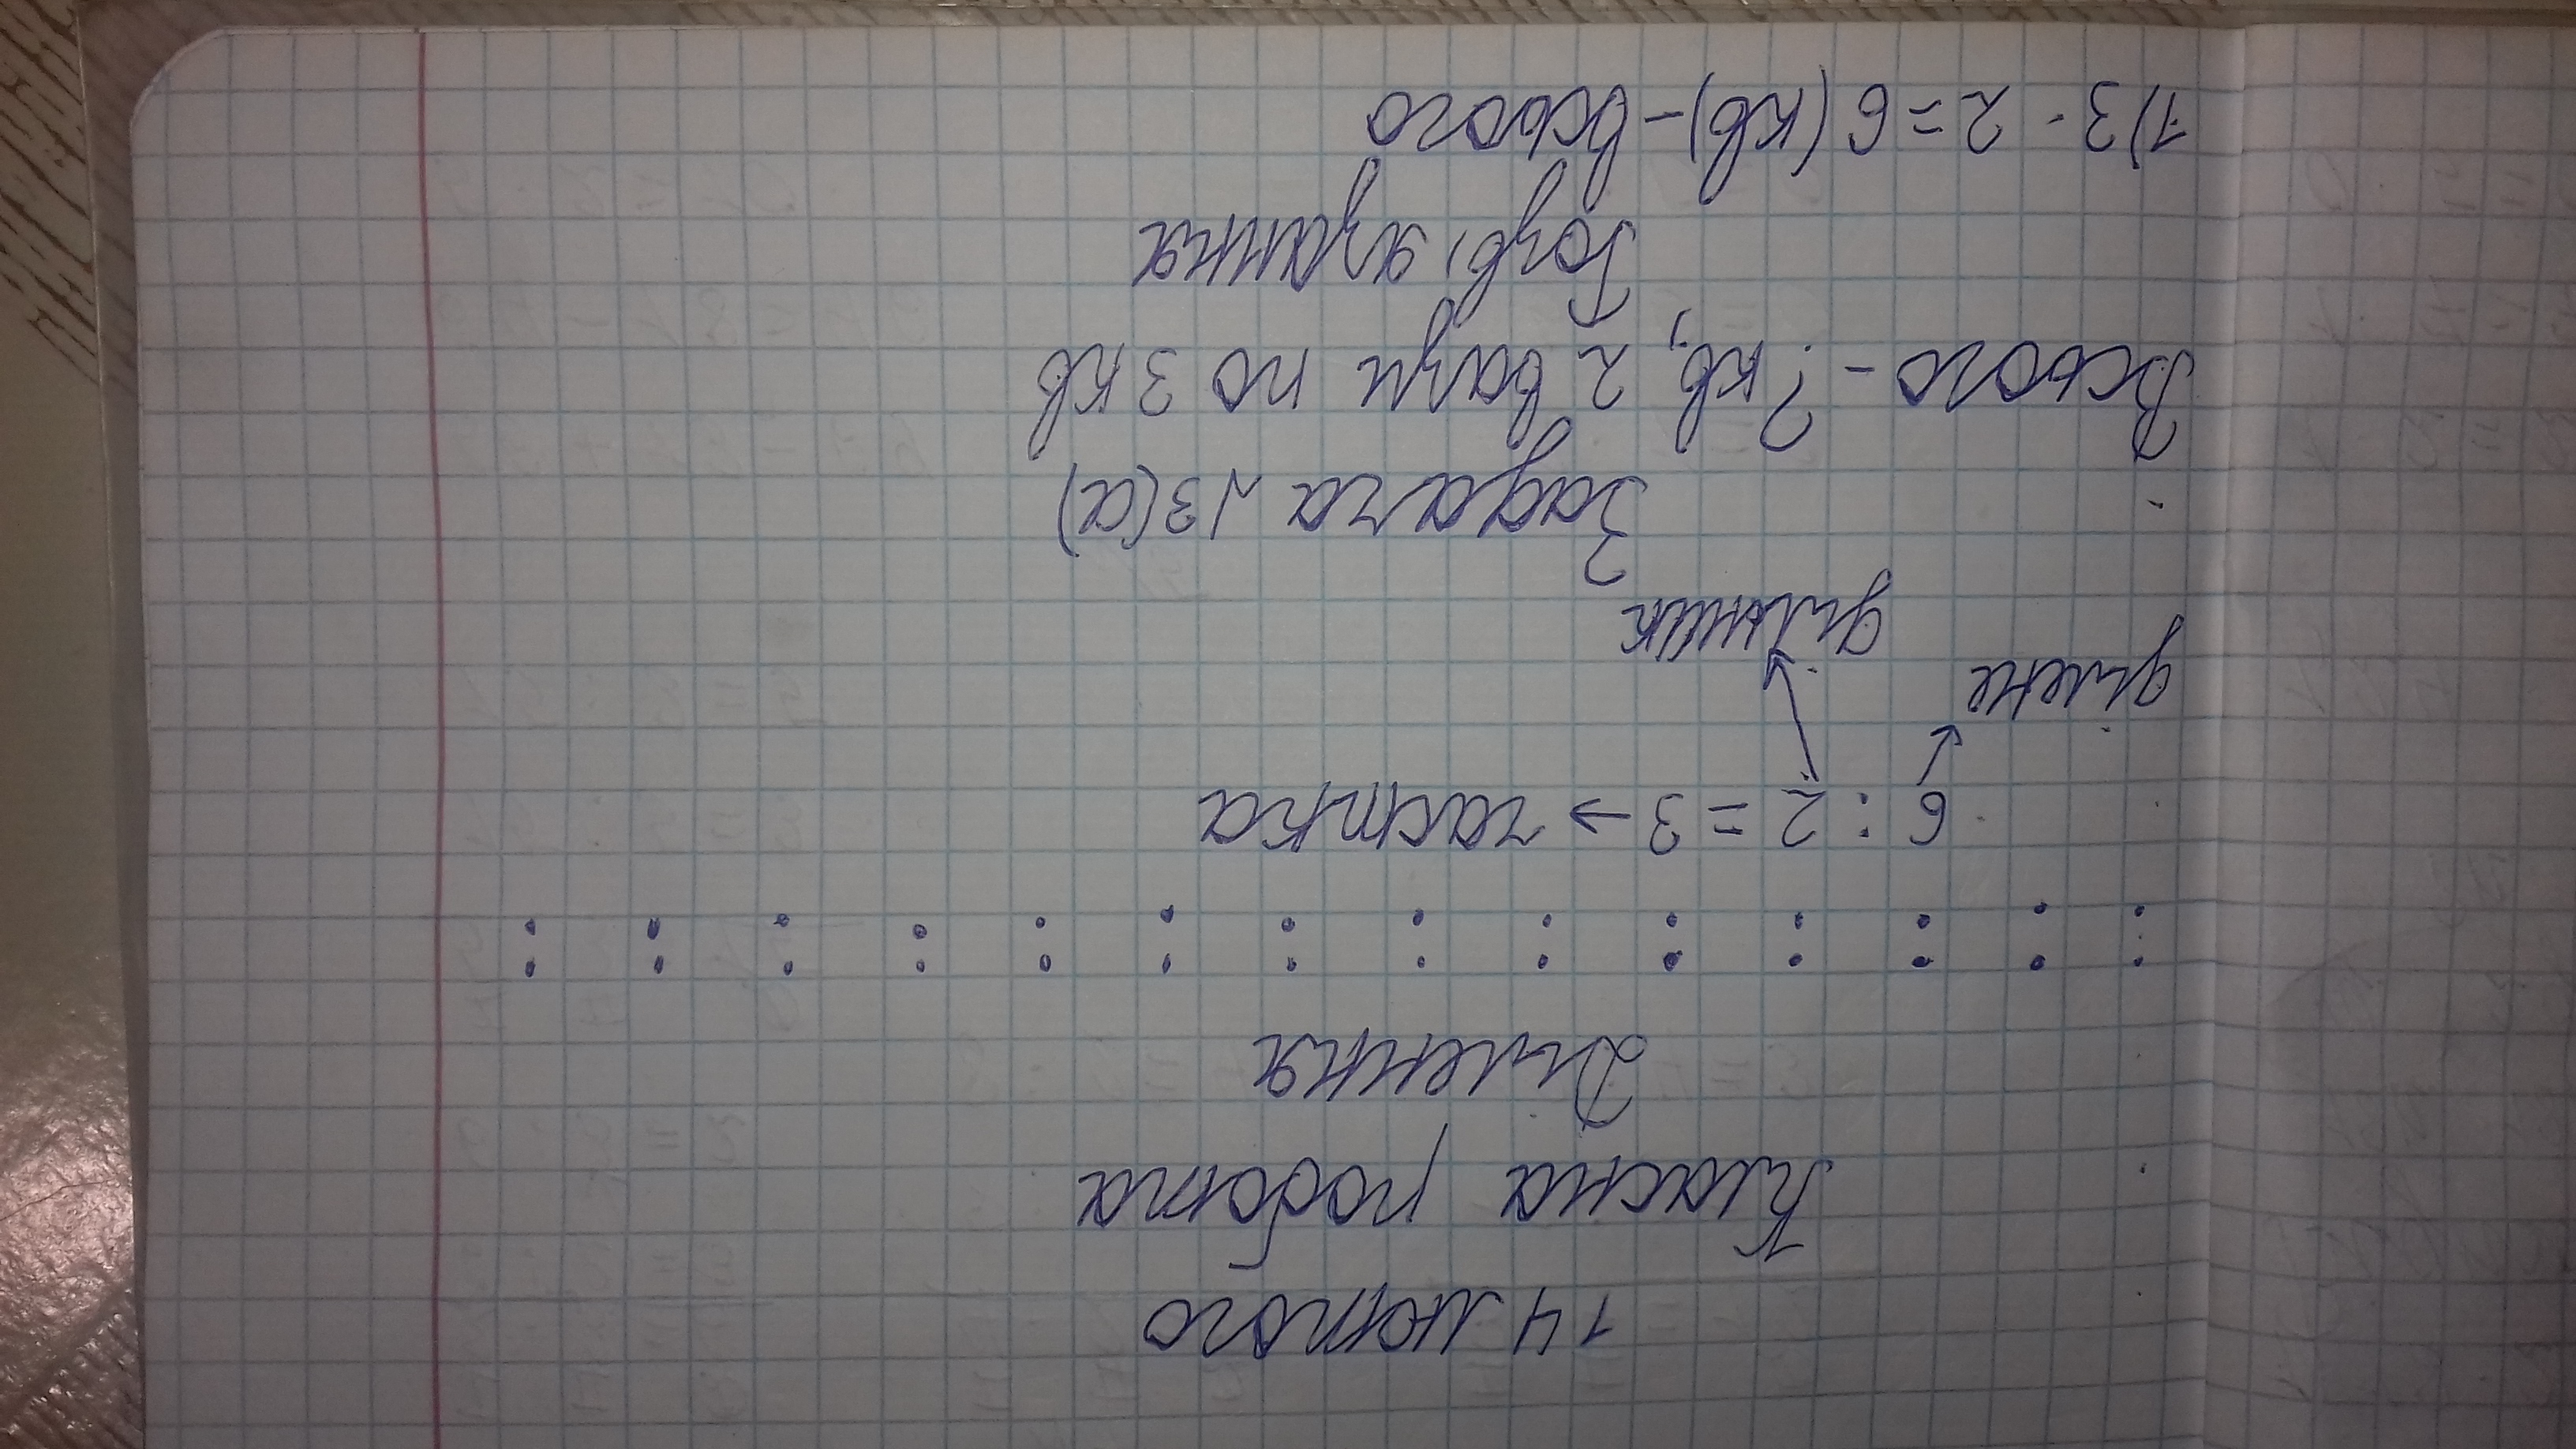 14 лютого
Класна робота
Ділення
: : : : : : : : : : : : : :
6 : 2 = 3 → частка
ділене
дільник
Задача №3(а)
Всього - ? кв, 2 вази по 3 кв
Розв'язання
1) 3 · 2 = 6 (кв) - всього